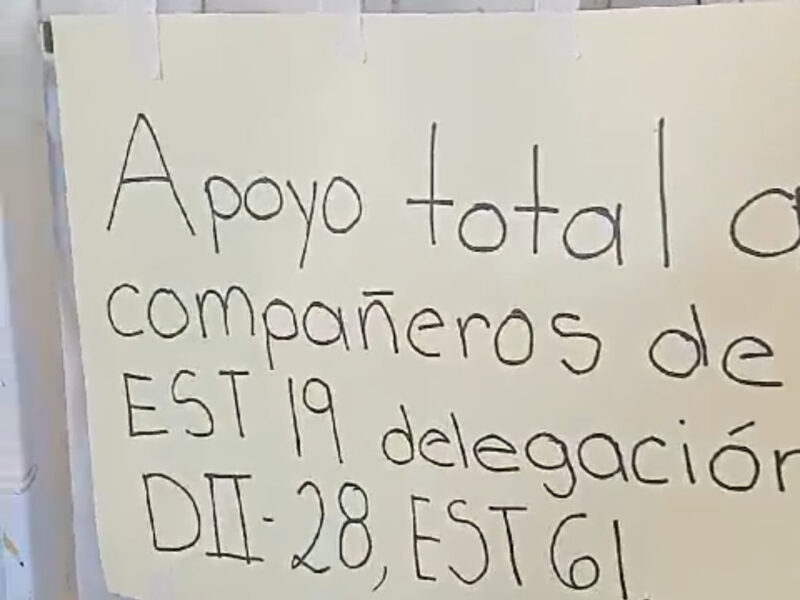 Apoyo total a
compañeros de
EST 19 delegación
DII-28, EST 61